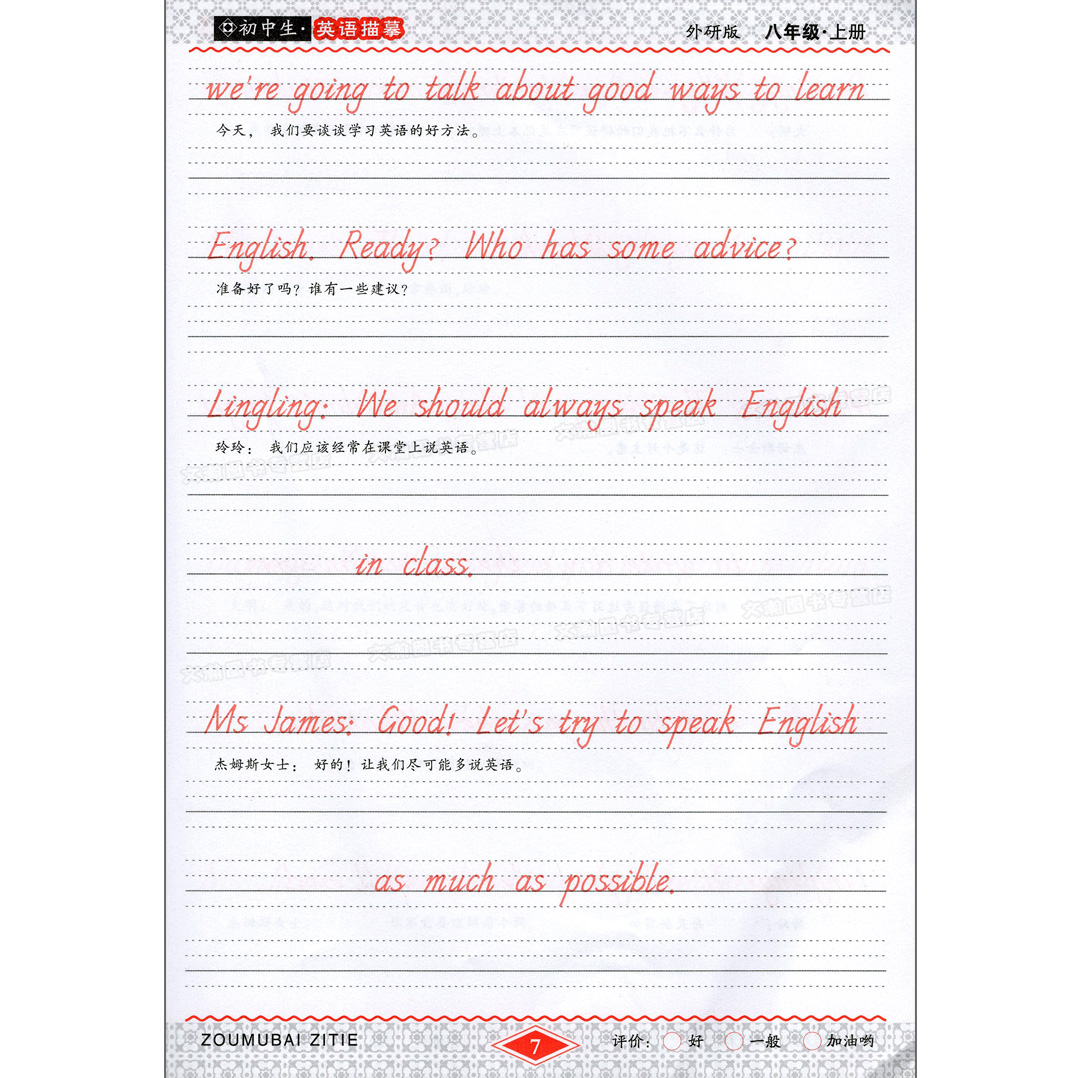 初中生·英语描摹 外研版 八年级·上册
we're going to talk about good ways to learn
今天， 我们要谈谈学习英语的好方法。
English. Ready? Who has some advice?
准备好了吗？谁有一些建议？
Lingling: We should always speak English
玲玲： 我们应该经常在课堂上说英语。
in class.
Ms James: Good! Let's try to speak English
杰姆斯女士： 好的！让我们尽可能多说英语。
as much as possible.
ZOUMUBAI ZITIE 7 评价： 好 一般 加油哟